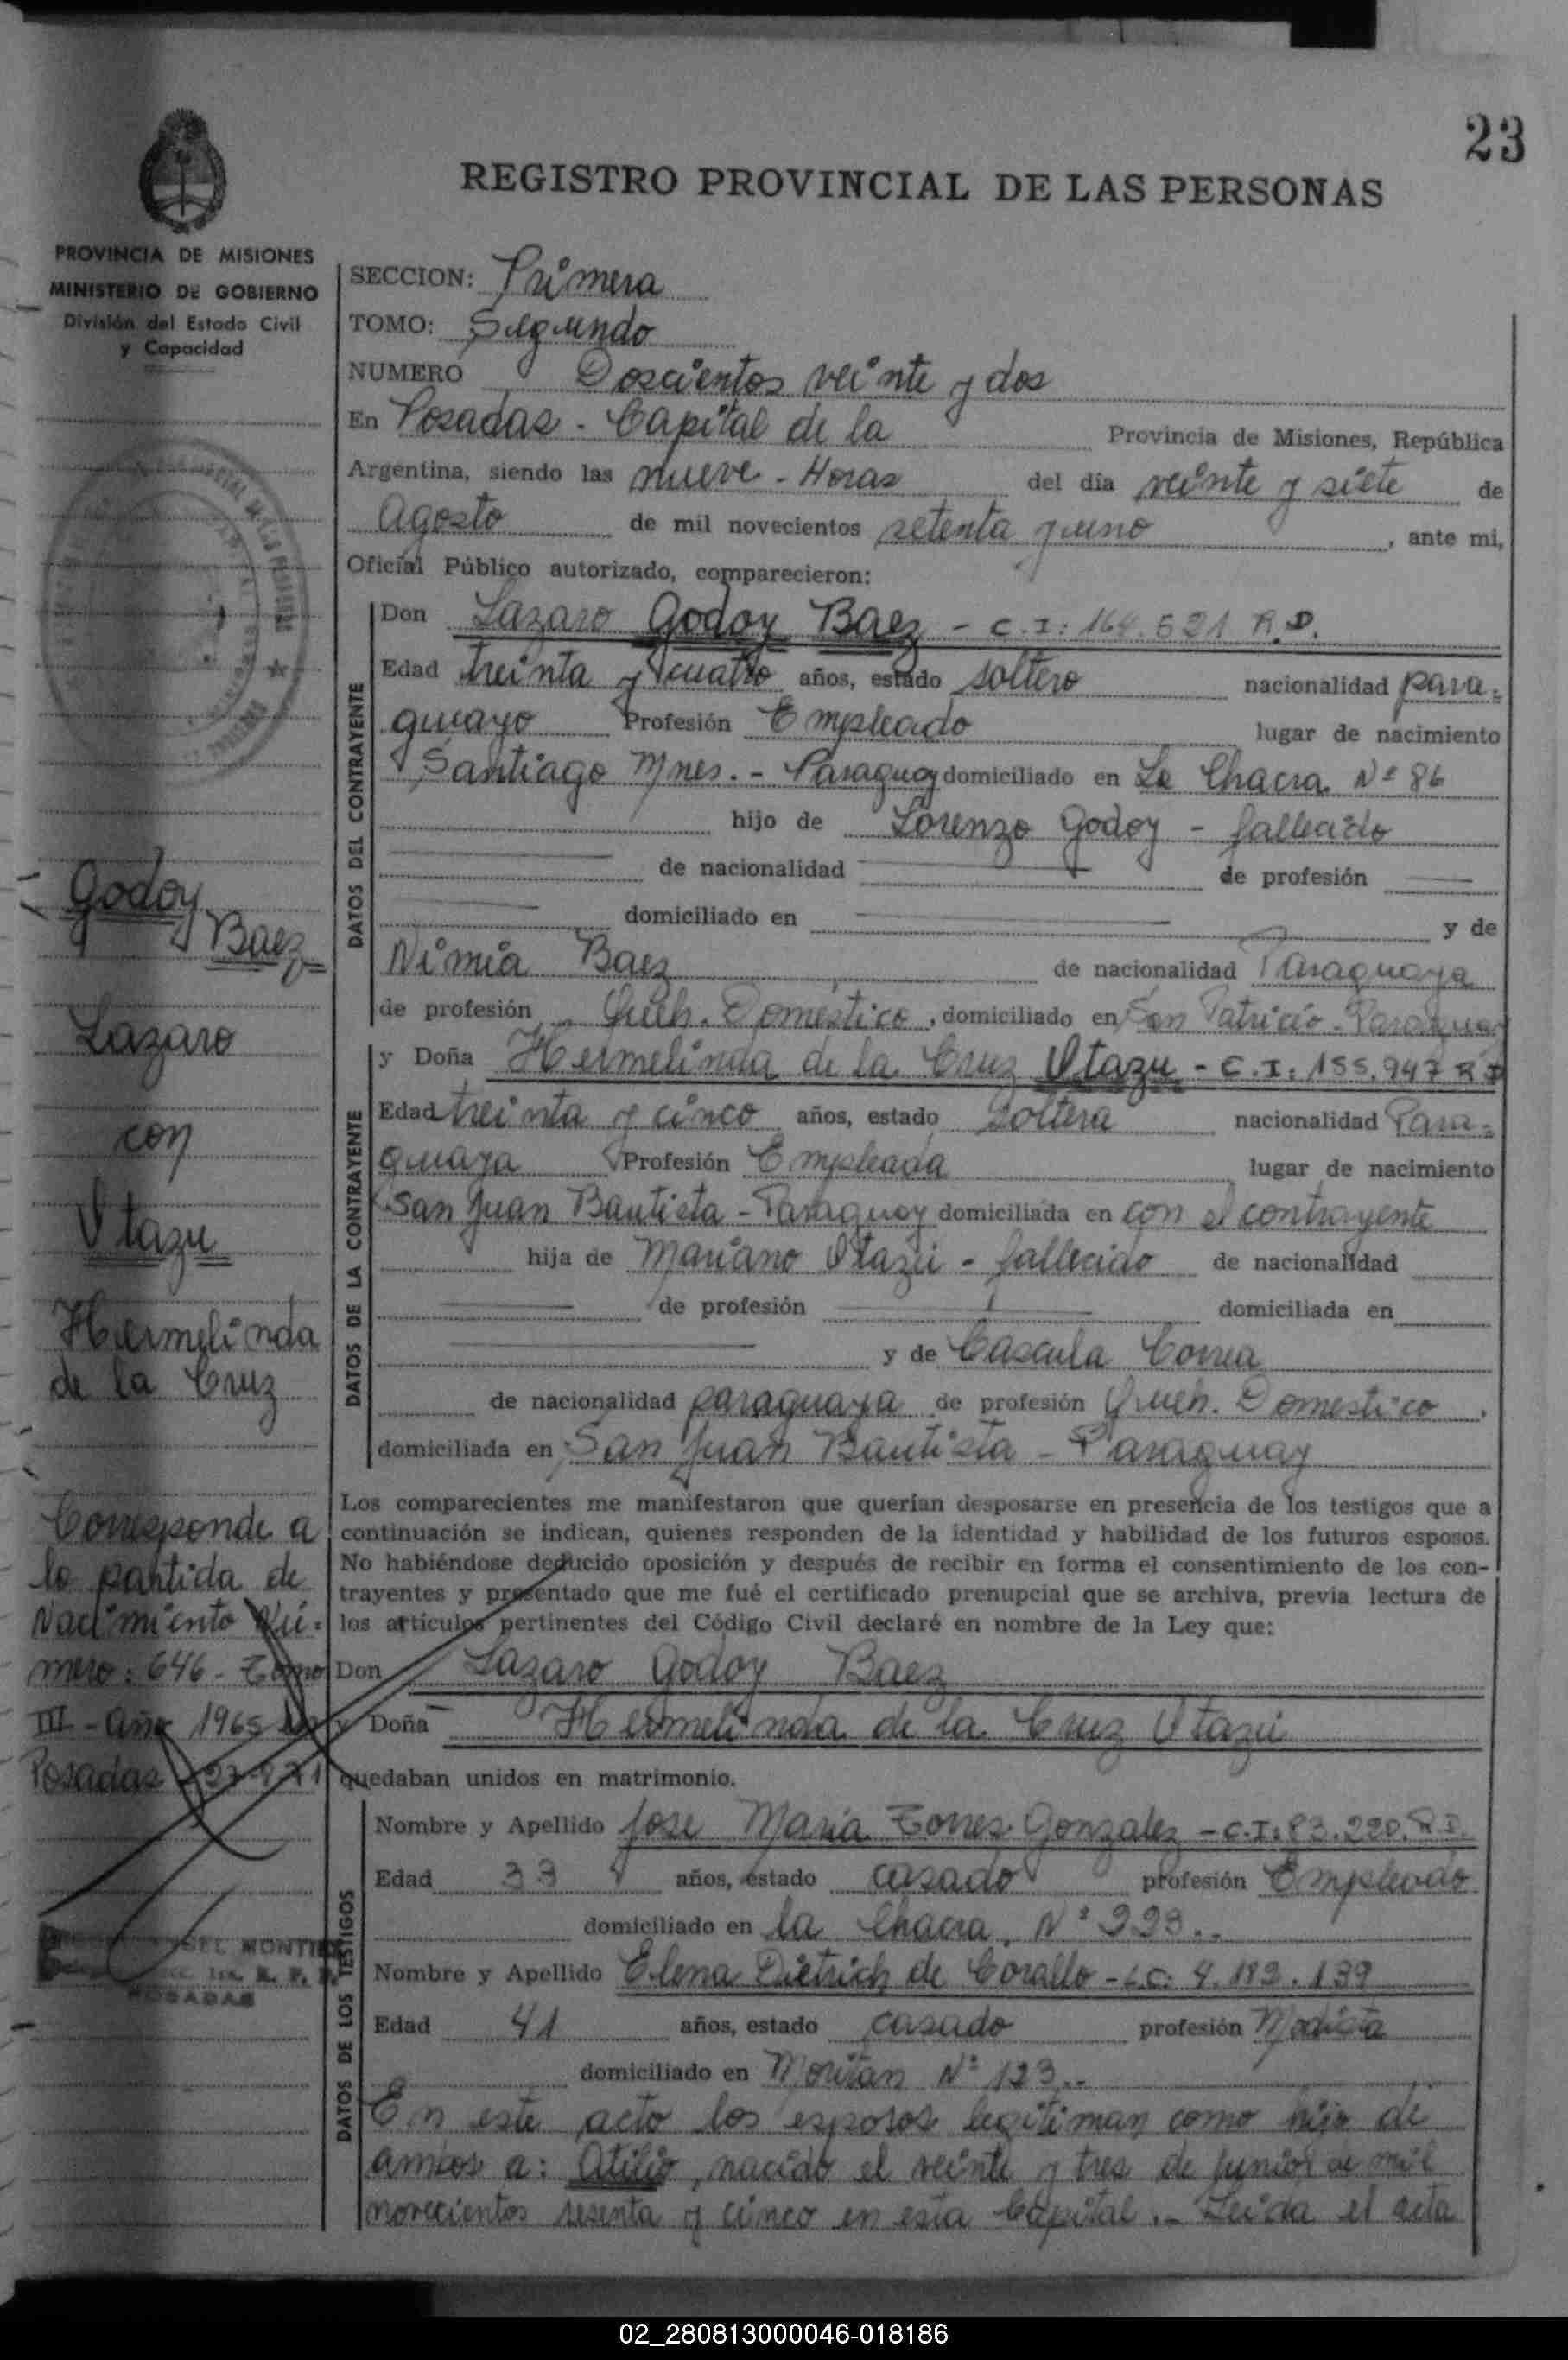 23
REGISTRO PROVINCIAL DE LAS PERSONAS
PROVINCIA DE MISIONES
MINISTERIO DE GOBIERNO
División del Estado Civil
y Capacidad
SECCION: Primera
TOMO: Segundo
NUMERO Doscientos veinte y dos
En Posadas - Capital de la Provincia de Misiones, República
Argentina, siendo las nueve - Horas del día veinte y siete de
Agosto de mil novecientos setenta y uno, ante mi,
Oficial Público autorizado, comparecieron:
DATOS DEL CONTRAYENTE
Don Lazaro Godoy Baez - C.I: 164.521 R.P.
Edad treinta y cuatro años, estado soltero nacionalidad para=
guayo Profesión Empleado lugar de nacimiento
Santiago Mnes. - Paraguay domiciliado en La Chacra Nº 86
hijo de Lorenzo Godoy - fallecido
de nacionalidad de profesión
domiciliado en y de
Nimia Baez de nacionalidad Paraguaya
de profesión Queh. Domestico, domiciliado en San Patricio - Paraguay
DATOS DE LA CONTRAYENTE
y Doña Hermelinda de la Cruz Otazu - C.I: 155.947 R.P
Edad treinta y cinco años, estado soltera nacionalidad Para=
guaya Profesión Empleada lugar de nacimiento
San Juan Bautista - Paraguay domiciliada en con el contrayente
hija de Mariano Otazú - fallecido de nacionalidad
de profesión domiciliada en
y de Correa
de nacionalidad paraguaya de profesión Queh. Domestico.
domiciliada en San Juan Bautista - Paraguay
Godoy
Baez
Lazaro
con
Otazu
Hermelinda
de la Cruz
Los comparecientes me manifestaron que querían desposarse en presencia de los testigos que a
continuación se indican, quienes responden de la identidad y habilidad de los futuros esposos.
No habiéndose deducido oposición y después de recibir en forma el consentimiento de los con-
trayentes y presentado que me fué el certificado prenupcial que se archiva, previa lectura de
los artículos pertinentes del Código Civil declaré en nombre de la Ley que:
Don Lazaro Godoy Baez
y Doña Hermelinda de la Cruz Otazú
quedaban unidos en matrimonio.
Corresponde a
la partida de
Nacimiento Nú=
mero: 646 - Tomo
III - Año 1965
Posadas 27-8-71
DATOS DE LOS TESTIGOS
Nombre y Apellido Jose Maria Torres Gonzalez - C.I: 83.220. R.P.
Edad 33 años, estado casado profesión Empleado
domiciliado en la Chacra Nº 223..
Nombre y Apellido Elena Dietrich de Corallo - L.C. 4.189.139
Edad 41 años, estado casado profesión Modista
domiciliado en Moritan Nº 123..
En este acto los esposos legitiman como hijo de
ambos a: Atilio, nacido el veinte y tres de junio de mil
novecientos sesenta y cinco en esta Capital.- Leída el acta
POSADAS
02_280813000046-018186